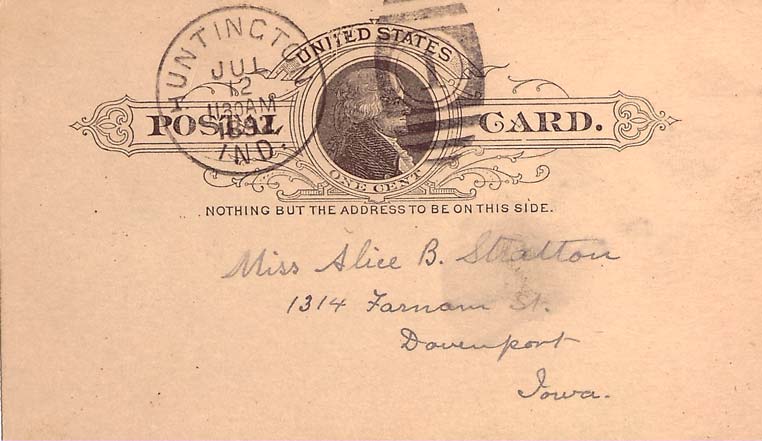 HUNTINGTON
JUL
12
1130AM
IND.
UNITED STATES
POSTAL CARD.
ONE CENT
NOTHING BUT THE ADDRESS TO BE ON THIS SIDE.
Miss Alice B. Stratton
1314 Farnam St.
Davenport
Iowa.